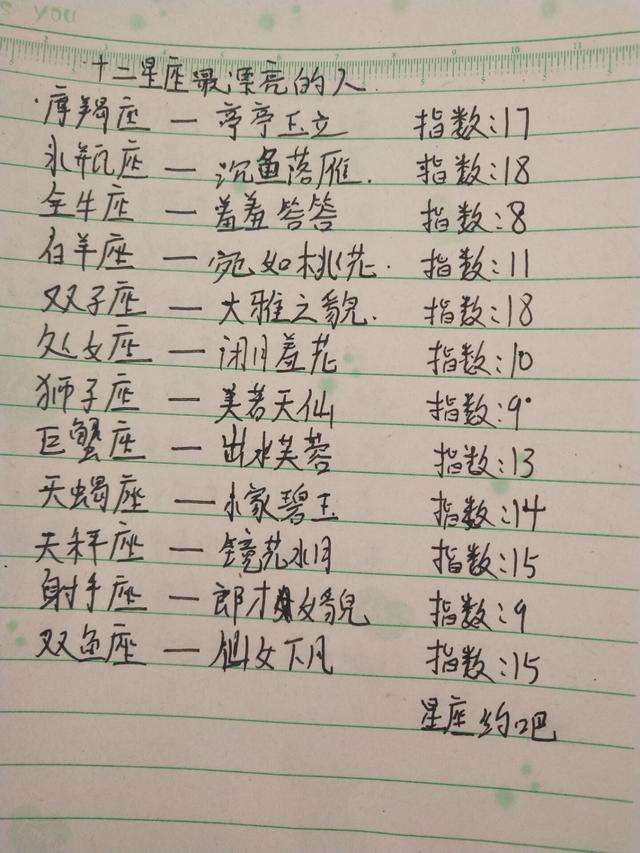 十二星座最漂亮的人.
摩羯座 — 亭亭玉立 指数:17
水瓶座 — 沉鱼落雁. 指数:18
金牛座 — 羞羞答答 指数:8
白羊座 — 宛如桃花. 指数:11
双子座 — 大雅之貌. 指数:18
处女座 — 闭月羞花 指数:10
狮子座 — 美若天仙 指数:9
巨蟹座 — 出水芙蓉 指数:13
天蝎座 — 小家碧玉 指数:14
天秤座 — 镜花水月 指数:15
射手座 — 郎才女貌 指数:9
双鱼座 — 仙女下凡 指数:15
星座约吧